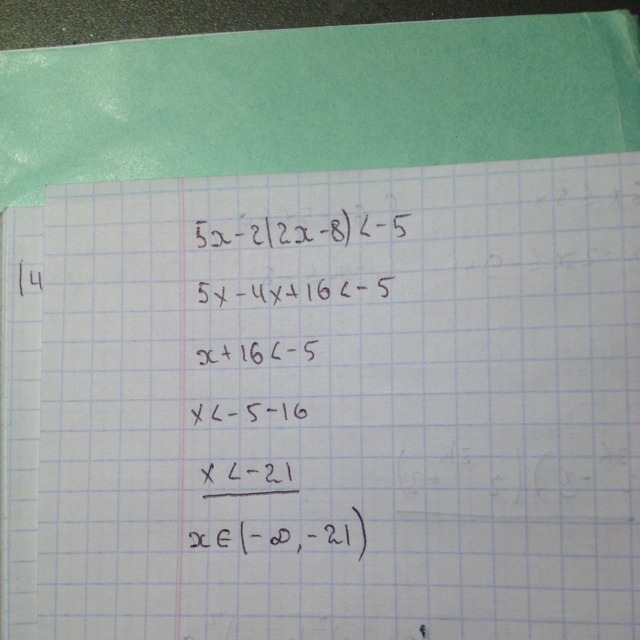 5x-2(2x-8)<-5
(4
5x-4x+16<-5
x+16<-5
x<-5-16
x<-21
x∈(-∞,-21)